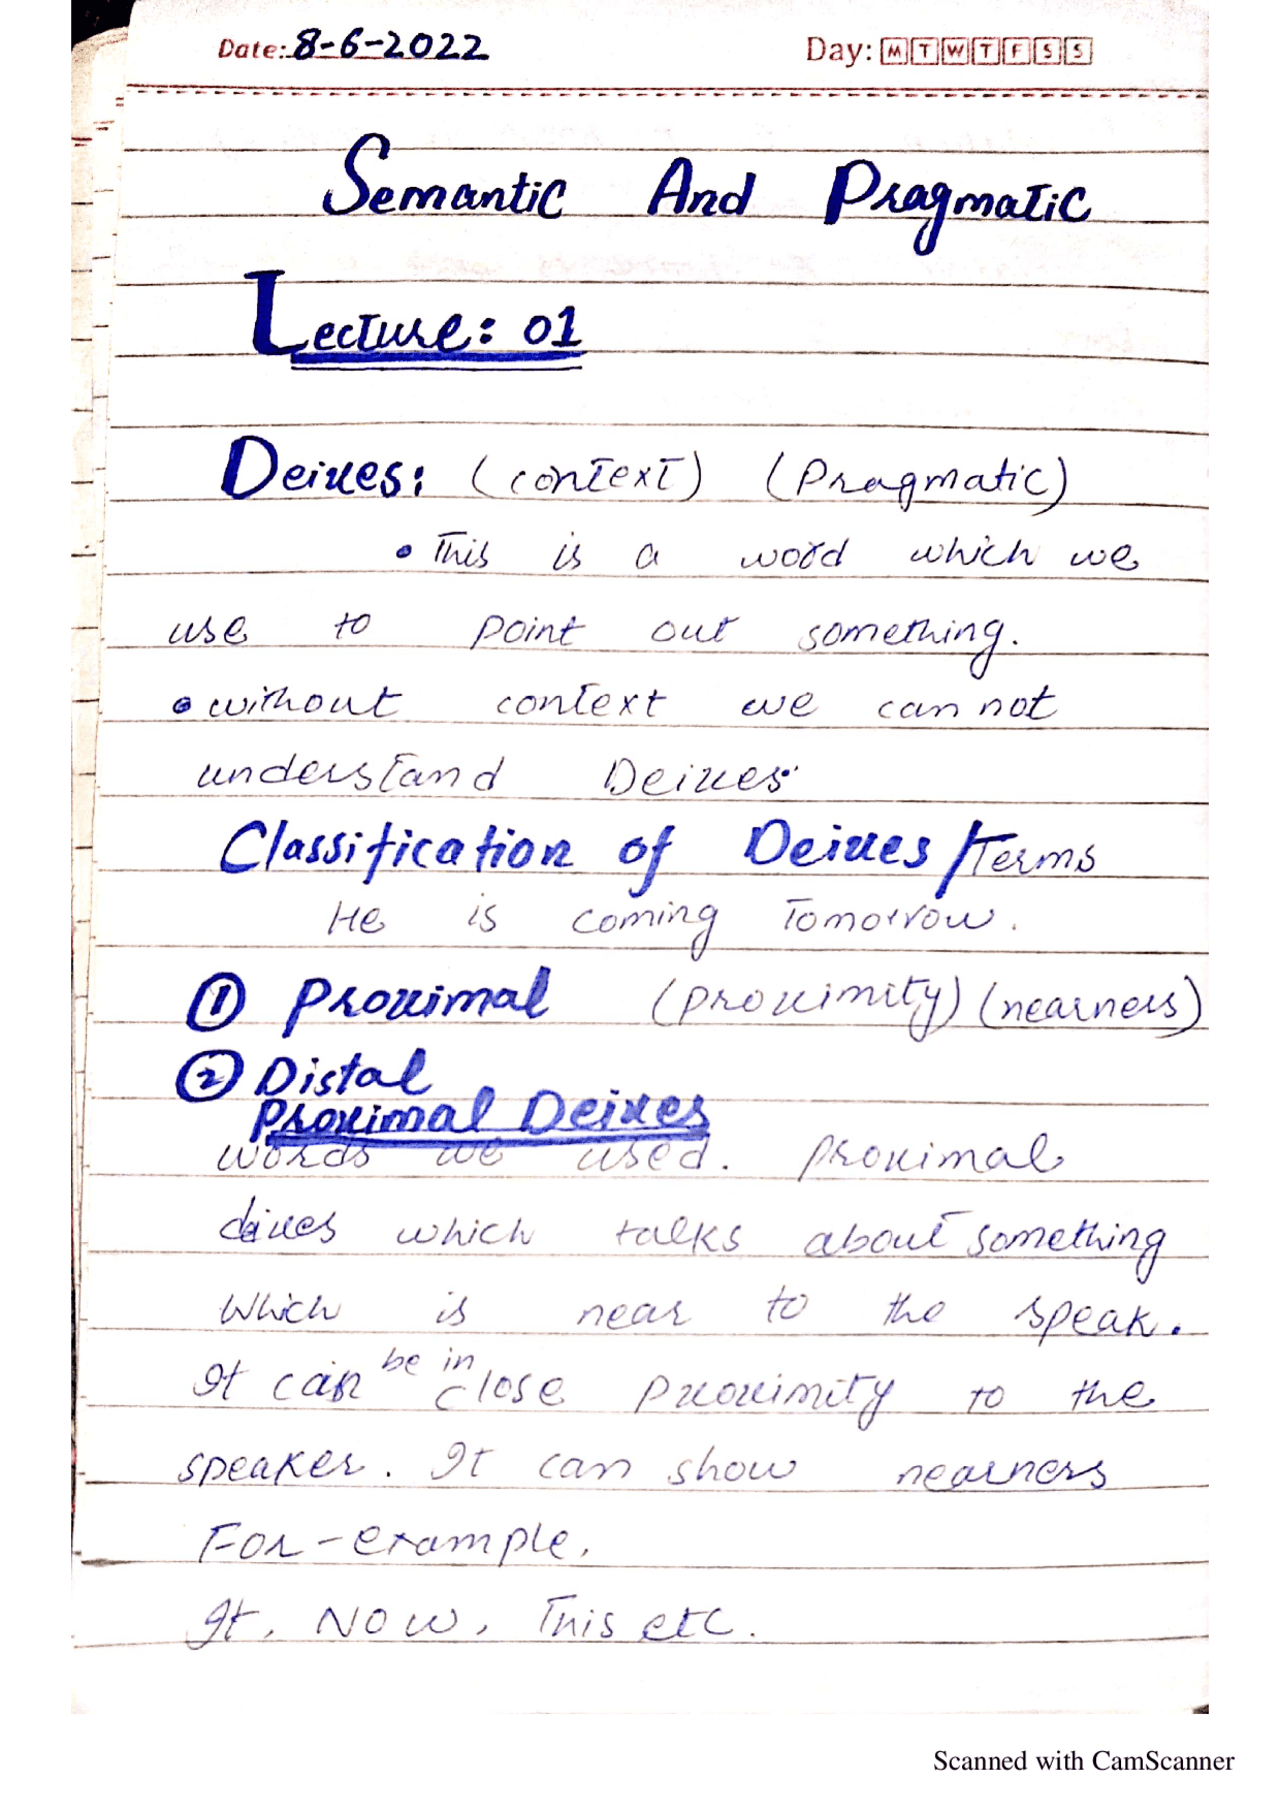 Date: 8-6-2022 Day: M T W T F S S
Semantic And Pragmatic
Lecture: 01
Deixes: (context) (Pragmatic)
• This is a word which we
use to point out something.
• without context we can not
understand Deixes.
Classification of Deixes/Terms
He is coming Tomorrow.
① Proximal (proximity) (nearness)
② Distal
Proximal Deixes
words we used. proximal
dixes which talks about something
which is near to the speak.
It can be in close proximity to the
speaker. It can show nearness
For-example,
It, NOW, This etc.
Scanned with CamScanner